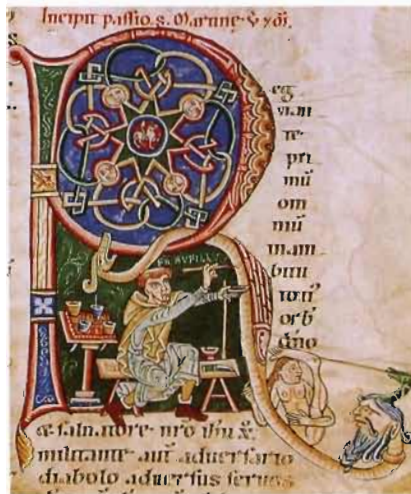 Incipit passio s. Martine
R
eg
nan
te
pri
mū
om
niū
inam
bitu
toti᾽
orb᾽
dño
FR RVFILL᾽
& saluatore nr̄o ihū x̄
militante aut̄ aduersario
diabolo aduersus seruos